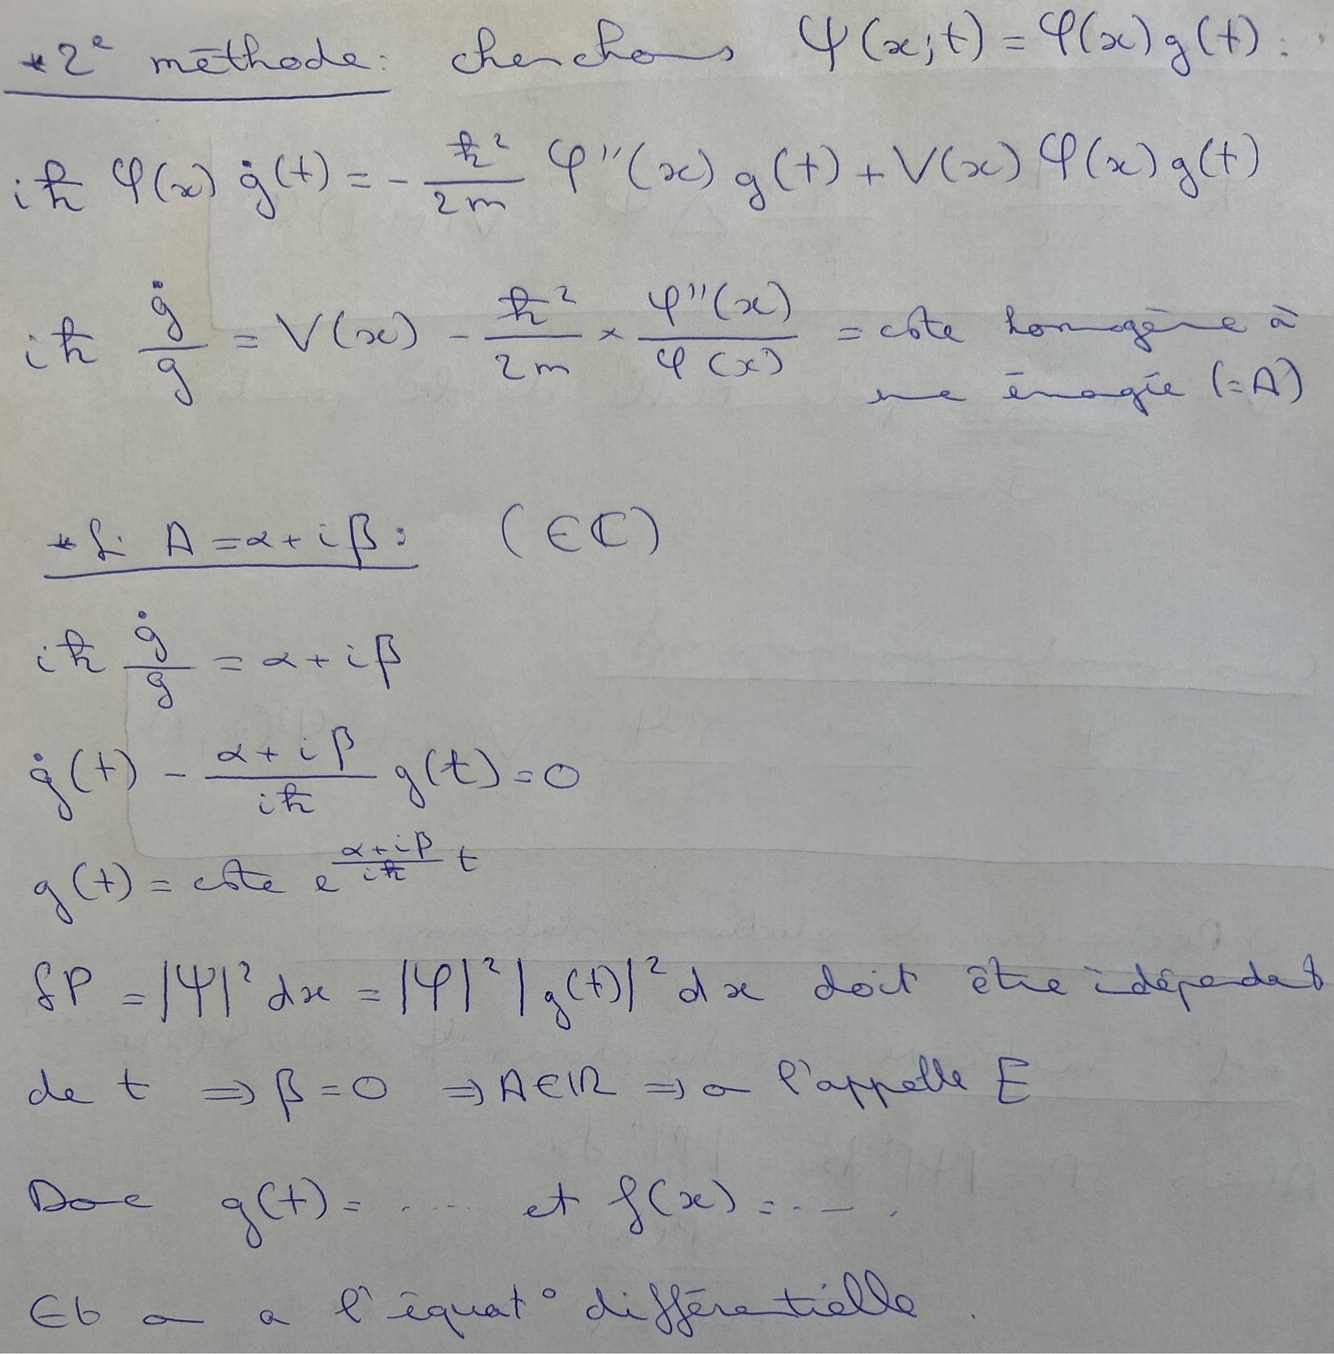 * 2e méthode: cherchons Ψ(x;t) = φ(x) g(t) :
iℏ φ(x) ġ(t) = - ℏ²/2m φ''(x) g(t) + V(x) φ(x) g(t)
iℏ ġ/g = V(x) - ℏ²/2m × φ''(x)/φ(x) = cste homogène à
une énergie (=A)
* Si A = α + iβ : (∈ℂ)
iℏ ġ/g = α + iβ
ġ(t) - (α+iβ)/(iℏ) g(t) = 0
g(t) = cste e^((α+iβ)/(iℏ) t)
δP = |Ψ|² dx = |φ|² |g(t)|² dx doit être indépendant
de t ⇒ β = 0 ⇒ A∈ℝ ⇒ on l'appelle E
Donc g(t) = ..... et f(x) = .....
Et on a l'équat° différentielle.